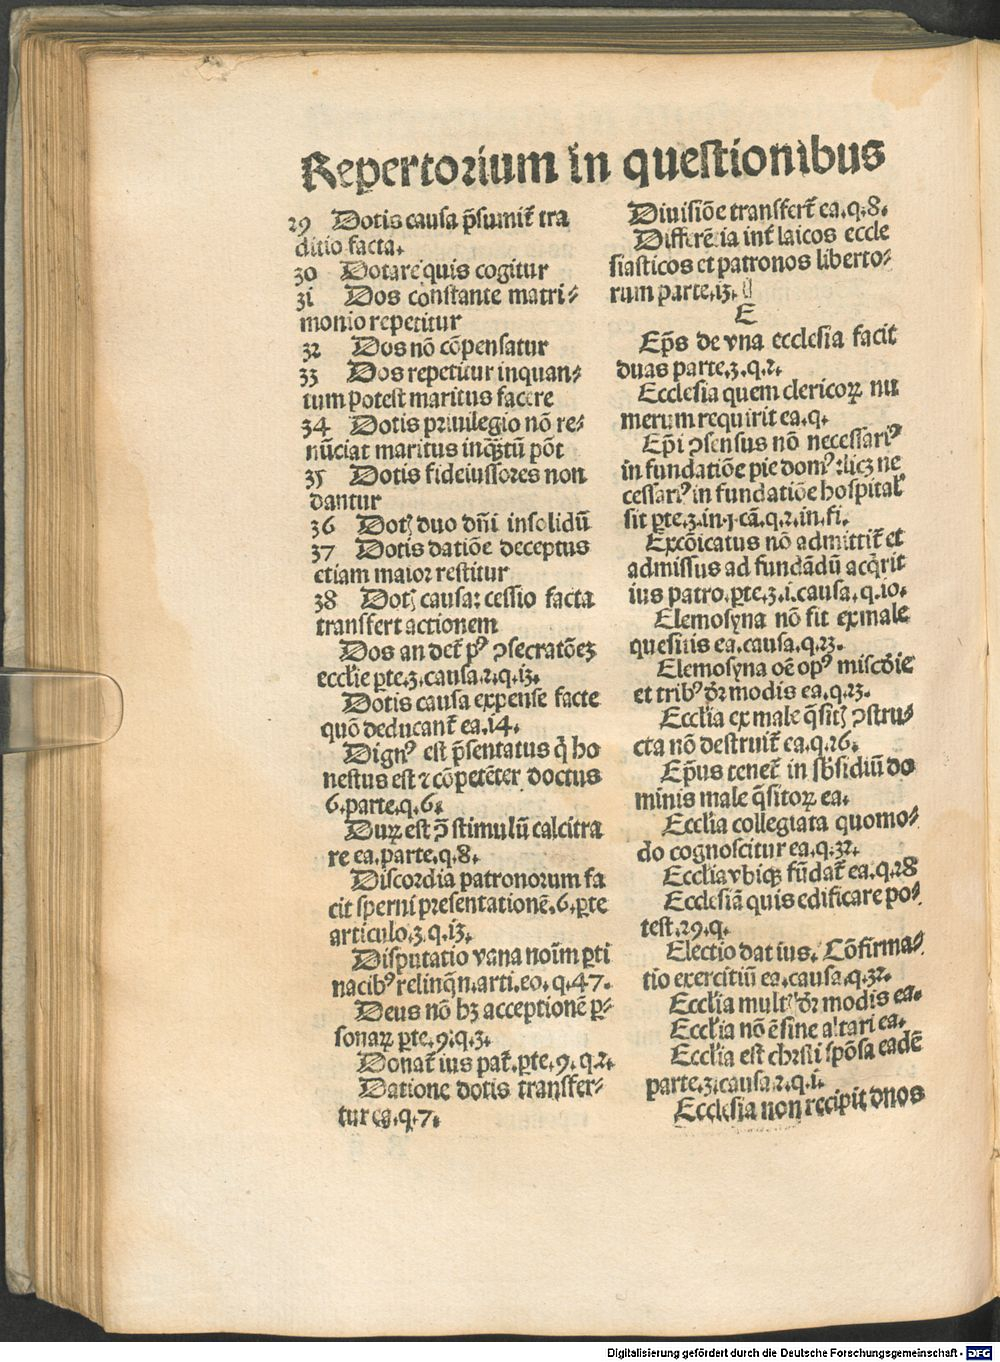 Repertorium in questionibus
29 Dotis causa p̄sumit̄ tra
ditio facta.
30 Dotare quis cogitur
31 Dos constante matri-
monio repetitur
32 Dos nō cōpensatur
33 Dos repetitur inquan-
tum potest maritus facere
34 Dotis priuilegio nō re-
nūciat maritus inq̄ꝫtū pōt
35 Dotis fideiussores non
dantur
36 Dotꝭ duo dn̄i insolidū
37 Dotis datiōe deceptus
etiam maior restitur
38 Dotꝭ causa: cessio facta
transfert actionem
Dos an det̄ pꝰ ↄsecratōeꝫ
eccl'ie ꝑte.3.causa.2.q.13.
Dotis causa expense facte
quō deducant̄ ea.14.
Dignꝰ est p̄sentatus q̇ ho
nestus est ⁊ cōpetēter doctus
6.parte.q.6.
Durꝝ est ↄ̄ stimulū calcitra
re ea.parte.q.8.
Discordia patronorum fa
cit sperni presentationē.6.ꝑte
articulo.3.q.13.
Disputatio vana noīm ꝑti
nacibꝰ relinq̄n.arti.eo.q.47.
Deus nō hꝫ acceptionē ꝑ-
sonaꝝ ꝑte.9.q.3.
Donat̄ ius pat̄.ꝑte.9.q.2.
Datione dotis transfer-
tur ea.q.7.
Diuisiōe transfert̄ ea.q.8.
Differētia int̄ laicos eccle
siasticos et patronos liberto-
rum parte.13.
E
Ep̄s de vna ecclesia facit
duas parte.3.q.2.
Ecclesia quem clericoꝝ nu
merum requirit ea.q.
Ep̄i ↄsensus nō necessariꝰ
in fundatiōe pie domꝰ :licꝫ ne
cessariꝰ in fundatiōe hospital'
sit ꝑte.3.in.j.cā.q.2.in.fi.
Excōicatus nō admittit̄ et
admissus ad fundādū acq̇rit
ius patro.ꝑte.3.i.causa.q.10.
Elemosyna nō fit ex male
quesitis ea.causa.q.23.
Elemosyna oē opꝰ misc̄die
et tribꝰ dr̄ modis ea.q.23.
Eccl'ia ex male q̄sitꝭ ↄstru-
cta nō destruit̄ ea.q.26.
Ep̄us tenet̄ in sb̄sidiū do
minis male q̄sitoꝝ ea.
Eccl'ia collegiata quomo-
do cognoscitur ea.q.32.
Eccl'ia vbiqꝫ fūdat̄ ea.q.28
Ecclesiā quis edificare po-
test.29.q.
Electio dat ius. Cōfirma-
tio exercitiū ea.causa.q.32.
Eccl'ia multꝭ dr̄ modis ea.
Eccl'ia nō ē sine altari ea.
Eccl'ia est christi spōsa eadē
parte.3.causa.2.q.i.
Ecclesia non recipit dnos
Digitalisierung gefördert durch die Deutsche Forschungsgemeinschaft - DFG